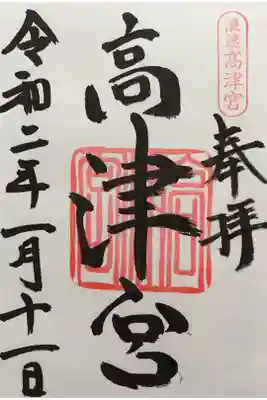 高津宮
奉拝
高津宮
令和二年一月十一日